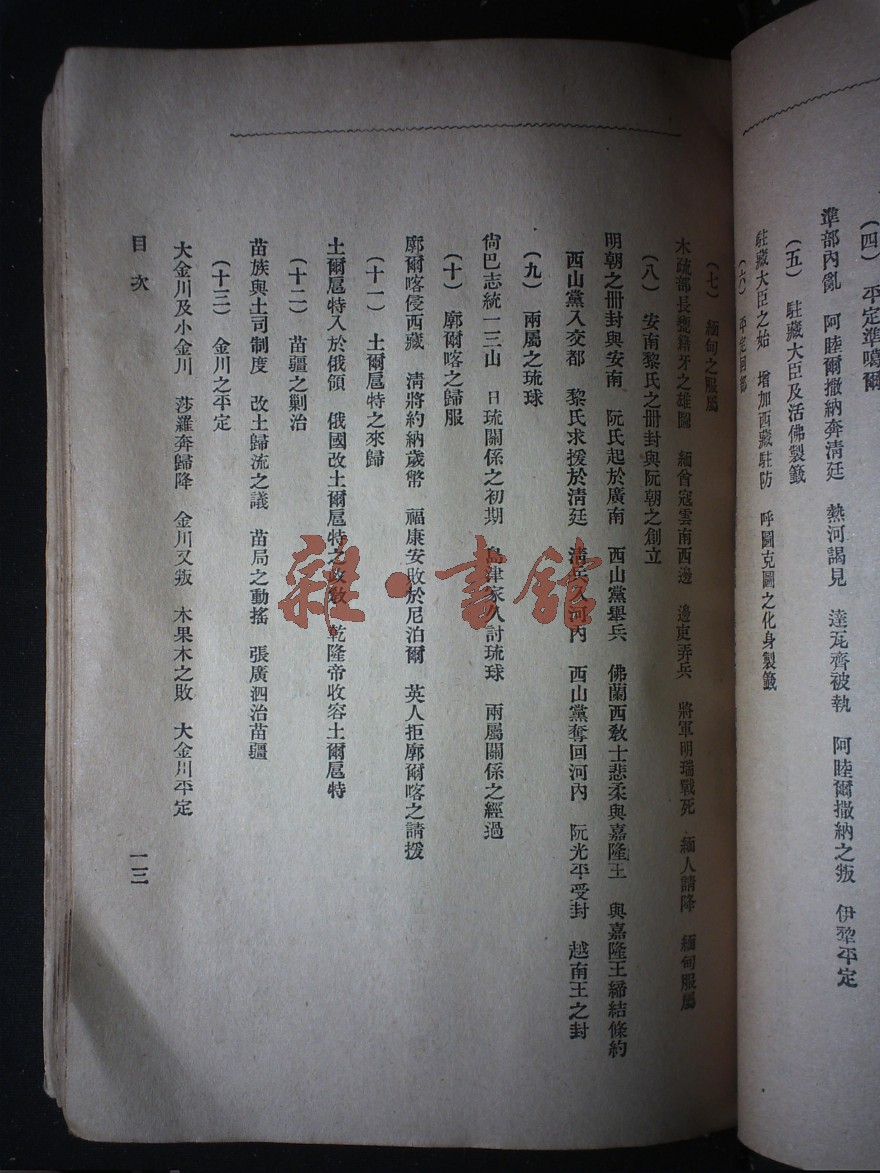 （四） 平定準噶爾
準部內亂 阿睦爾撒納奔淸廷 熱河謁見 達瓦齊被執 阿睦爾撒納之叛 伊犂平定
（五） 駐藏大臣及活佛製籤
駐藏大臣之始 增加西藏駐防 呼圖克圖之化身製籤
（六） 平定回部
（七） 緬甸之服屬
木疏部長甕籍牙之雄圖 緬酋寇雲南西邊 邊吏弄兵 將軍明瑞戰死 緬人請降 緬甸服屬
（八） 安南黎氏之冊封與阮朝之創立
明朝之冊封與安南 阮氏起於廣南 西山黨舉兵 佛蘭西敎士悲柔與嘉隆王 與嘉隆王締結條約
西山黨入交都 黎氏求援於淸廷 淸兵入河內 西山黨奪回河內 阮光平受封 越南王之封
（九） 兩屬之琉球
尙巴志統一三山 日琉關係之初期 島津家久討琉球 兩屬關係之經過
（十） 廓爾喀之歸服
廓爾喀侵西藏 淸將約納歲幣 福康安敗於尼泊爾 英人拒廓爾喀之請援
（十一） 土爾扈特之來歸
土爾扈特入於俄領 俄國改土爾扈特之政敎 乾隆帝收容土爾扈特
（十二） 苗疆之剿治
苗族與土司制度 改土歸流之議 苗局之動搖 張廣泗治苗疆
（十三） 金川之平定
大金川及小金川 莎羅奔歸降 金川又叛 木果木之敗 大金川平定
目次
一三
雜·書館